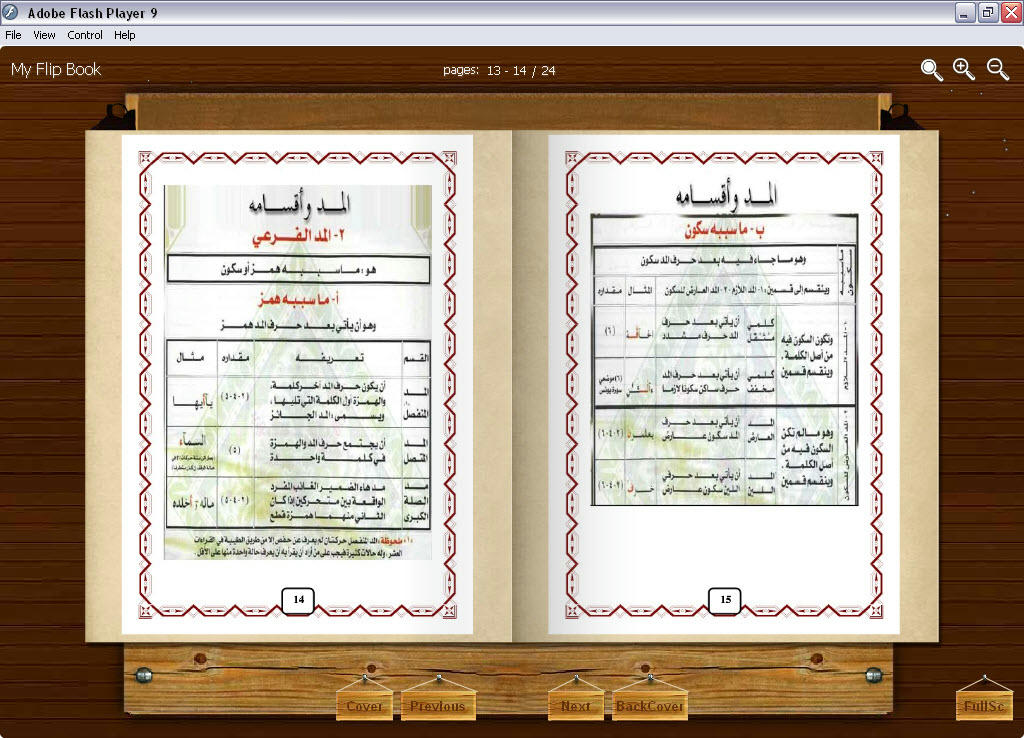 Adobe Flash Player 9
File View Control Help
My Flip Book
pages: 13 - 14 / 24
المد وأقسامه
٢- المد الفرعي
هو : ما سببه همز أو سكون
أ- ما سببه همز
وهو أن يأتي بعد حرف المد همز
القسم تعريفه مقداره مثال
المد المنفصل
أن يكون حرف المد آخر كلمة،
والهمزة أول الكلمة التي تليها،
ويسمى: المد الجائز
(٢-٤-٥)
يأأيها
المد المتصل
أن يجتمع حرف المد والهمزة
في كلمة واحدة
(٥)
السمآء
مد الصلة الكبرى
مد هاء الضمير الغائب المفرد
الواقعة بين متحركين إذا كان
الثاني منهما همزة قطع
(٢-٤-٥)
ماله أخلده
ملحوظة: المد المنفصل حركتان لم يعرف عن حفص إلا من طريق الطيبة في القراءات
العشر، وله حالات كثيرة فيجب على من أراد أن يقرأ به أن يعرف حالة واحدة منها على الأقل
14
المد وأقسامه
ب- ما سببه سكون
وهو ما جاء فيه بعد حرف المد سكون
وينقسم إلى قسمين: ١- المد اللازم ٢- المد العارض للسكون
المثال مقداره
وتكون السكون فيه
من أصل الكلمة،
وينقسم قسمين
كلمي مثقل
أن يأتي بعد حرف
المد حرف مشدد
(٦)
كلمي مخفف
أن يأتي بعد حرف المد
حرف ساكن سكونا لازما
(٦) موضعي
سورة يونس
وهو ما لم تكن
السكون فيه من
أصل الكلمة،
وينقسم قسمين
المد العارض
أن يأتي بعد حرف
المد سكون عارض
(٢-٤-٦)
المد اللين
أن يأتي بعد حرفي
اللين سكون عارض
(٢-٤-٦)
15
Cover Previous Next BackCover FullSc